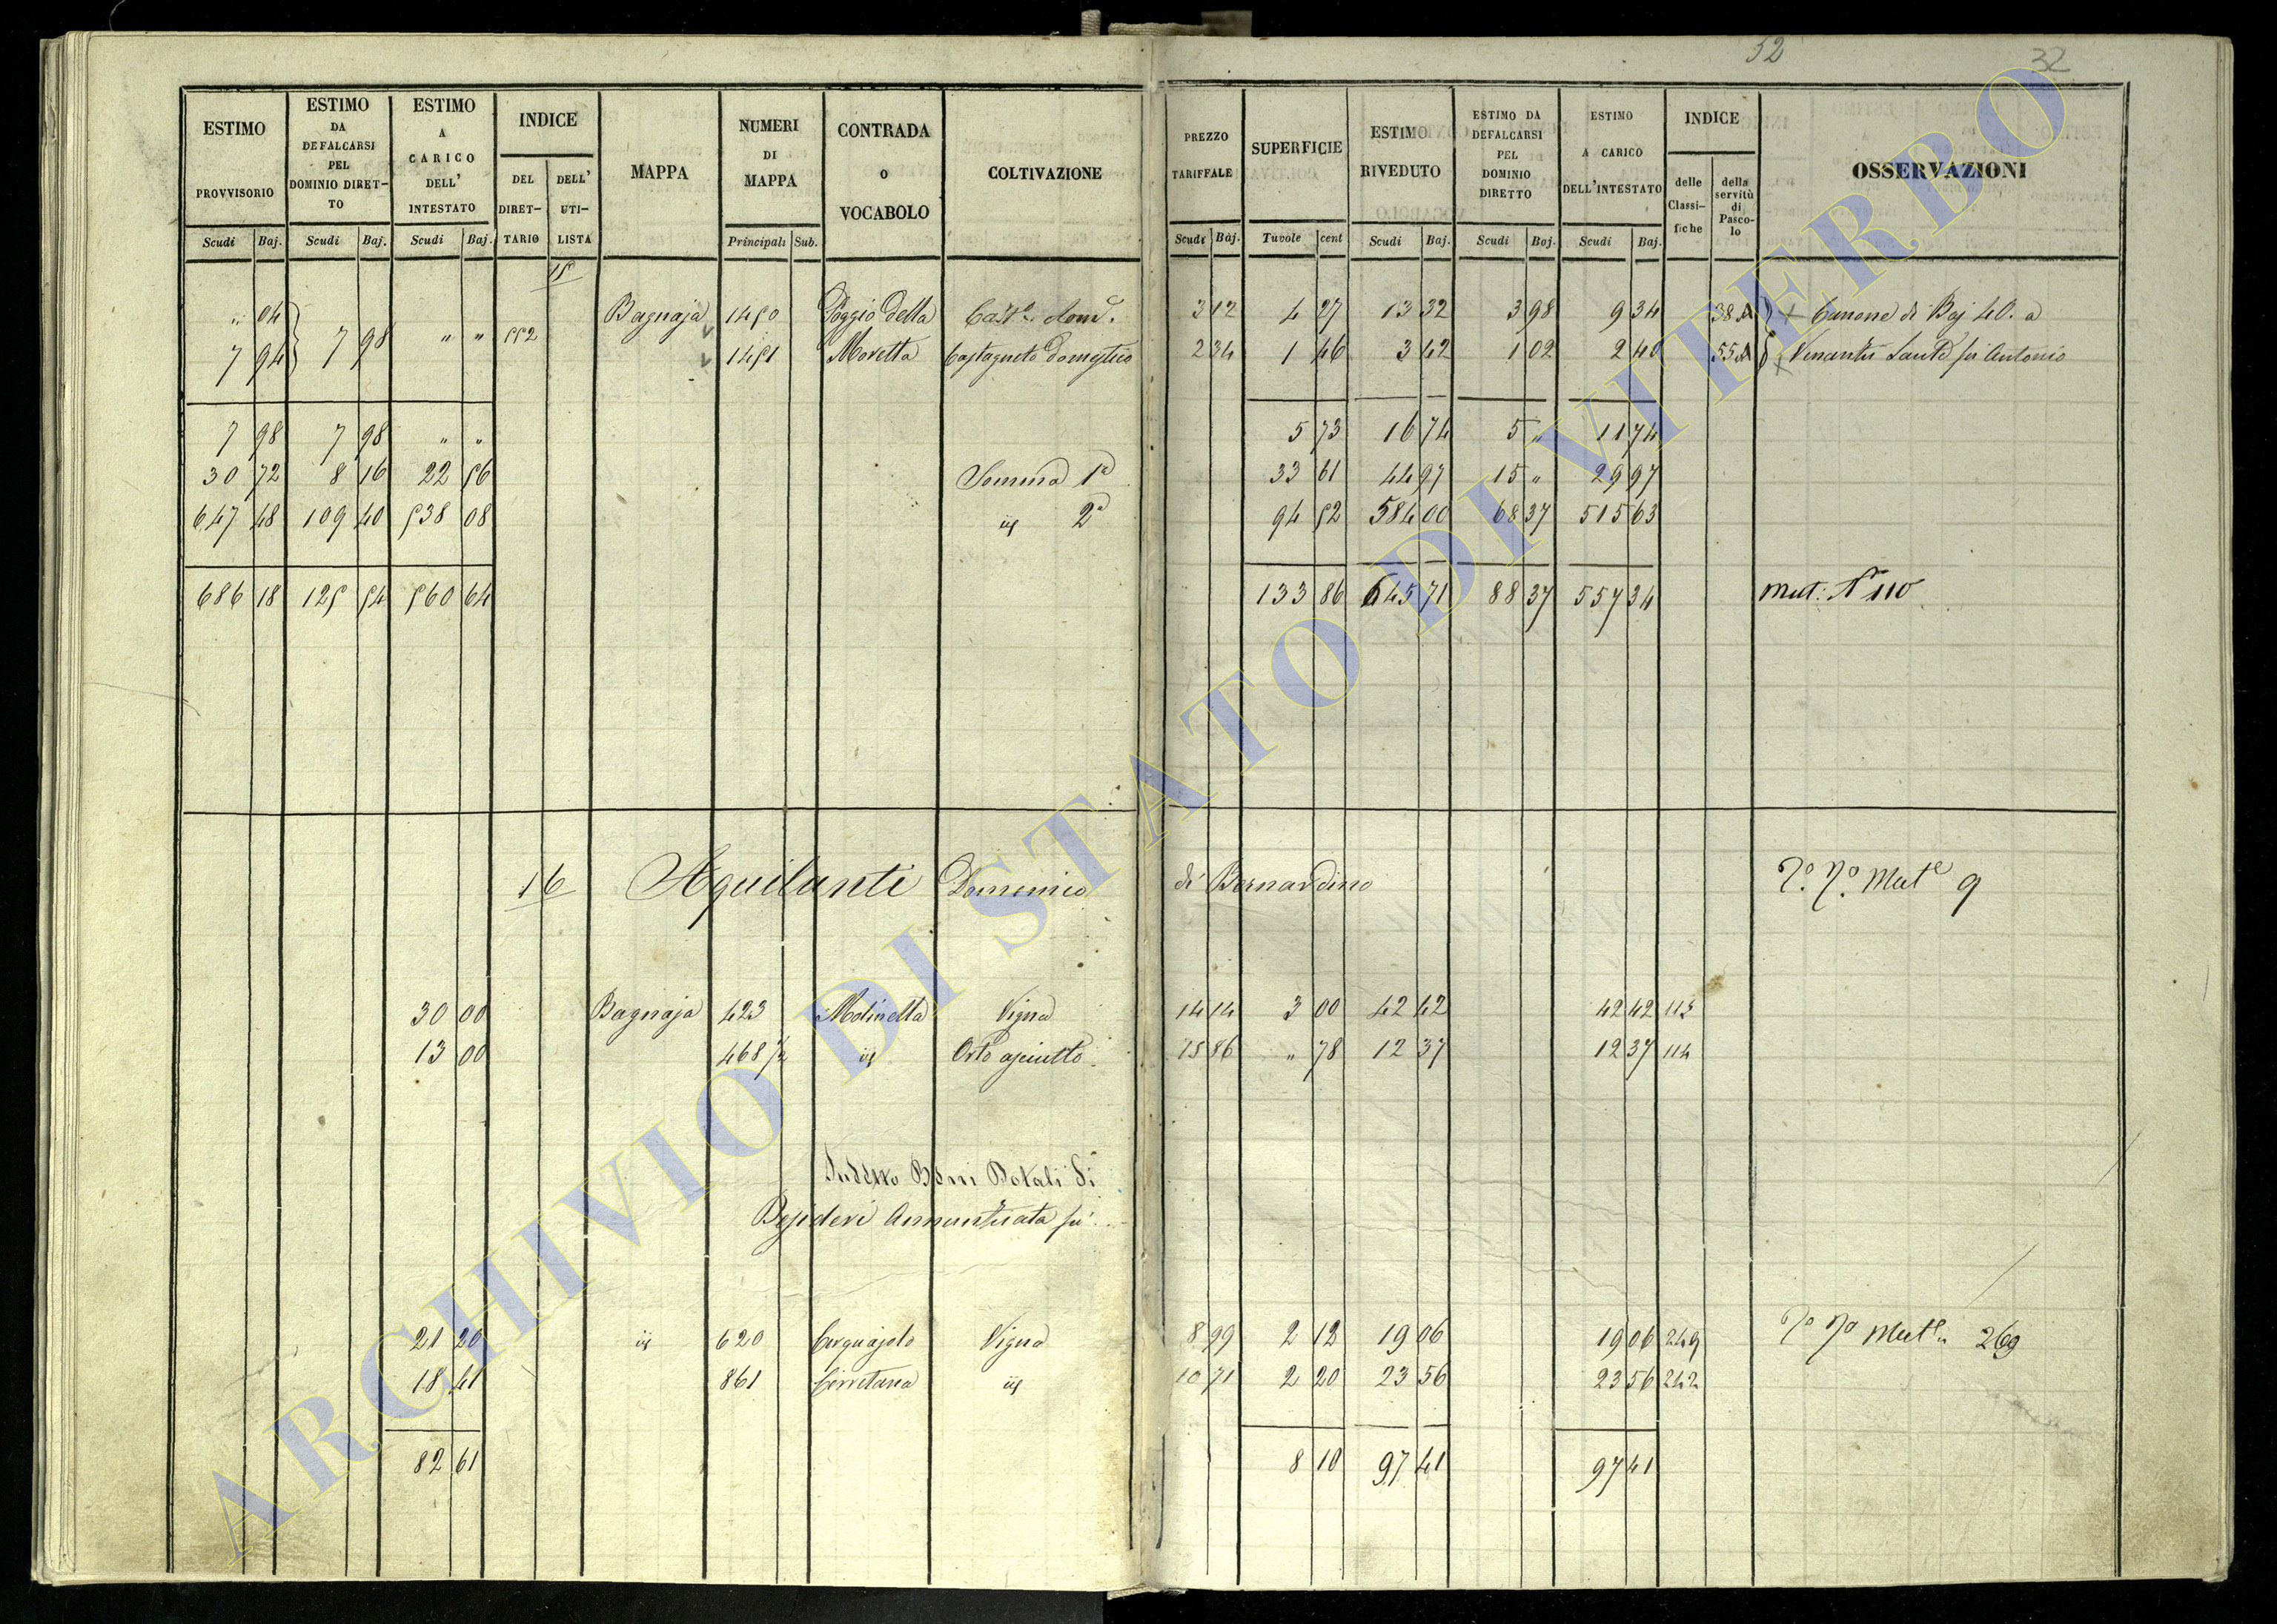 52 32
ESTIMO PROVVISORIO
ESTIMO DA DEFALCARSI PEL DOMINIO DIRET-TO
ESTIMO A CARICO DELL' INTESTATO
INDICE
DEL DIRET-TARIO
DELL' UTI-LISTA
MAPPA
NUMERI DI MAPPA
CONTRADA o VOCABOLO
COLTIVAZIONE
PREZZO TARIFFALE
SUPERFICIE
ESTIMO RIVEDUTO
ESTIMO DA DEFALCARSI PEL DOMINIO DIRETTO
ESTIMO A CARICO DELL'INTESTATO
INDICE
delle Classi-fiche
della servitù di Pasco-lo
OSSERVAZIONI
Scudi Baj. Scudi Baj. Scudi Baj. Principali Sub. Scudi Baj. Tavole cent Scudi Baj. Scudi Baj. Scudi Baj.
15
" 04 7 98 " " 552 Bagnaja 1450 Poggio della Cast. dom. 3 12 4 27 13 32 3 98 9 34 38 Canone di Baj 40. a
7 94 1451 Moretta Castagneto domestico 2 34 1 46 3 42 1 02 2 40 55 Venantij Sante fu Antonio
7 98 7 98 " " 5 73 16 74 5 " 11 74
30 72 8 16 22 56 Somma 1a 33 61 44 97 15 " 29 97
647 48 109 40 538 08 id 2a 94 52 584 00 68 37 515 63
686 18 125 54 560 64 133 86 645 71 88 37 557 34 Mut: N 110
16 Aquilanti Domenico di Bernardino Mut 9
30 00 Bagnaja 423 Molinella Vigna 14 14 3 00 42 42 42 42 113
13 00 468 1/2 id Orto asciutto 15 86 " 78 12 37 12 37 114
Sudetto Beni Dotali di
Annunziata fu
21 20 id 620 Cerquajolo Vigna 8 99 2 12 19 06 19 06 249 Mut 269
18 41 861 Cerretana id 10 71 2 20 23 56 23 56 242
82 61 8 10 97 41 97 41
ARCHIVIO DI STATO DI VITERBO